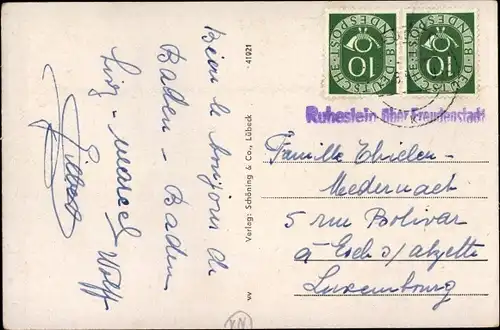 Bien le bonjour de
Baden - Baden
Luz - Marcel Wolff
Gilbert
41921
Verlag: Schöning & Co., Lübeck
DEUTSCHE BUNDESPOST
10
DEUTSCHE BUNDESPOST
10
Ruhestein über Freudenstadt
Famille Thielen-
Medernach
5 rue Bolivar
à Esch s/alzette
Luxembourg